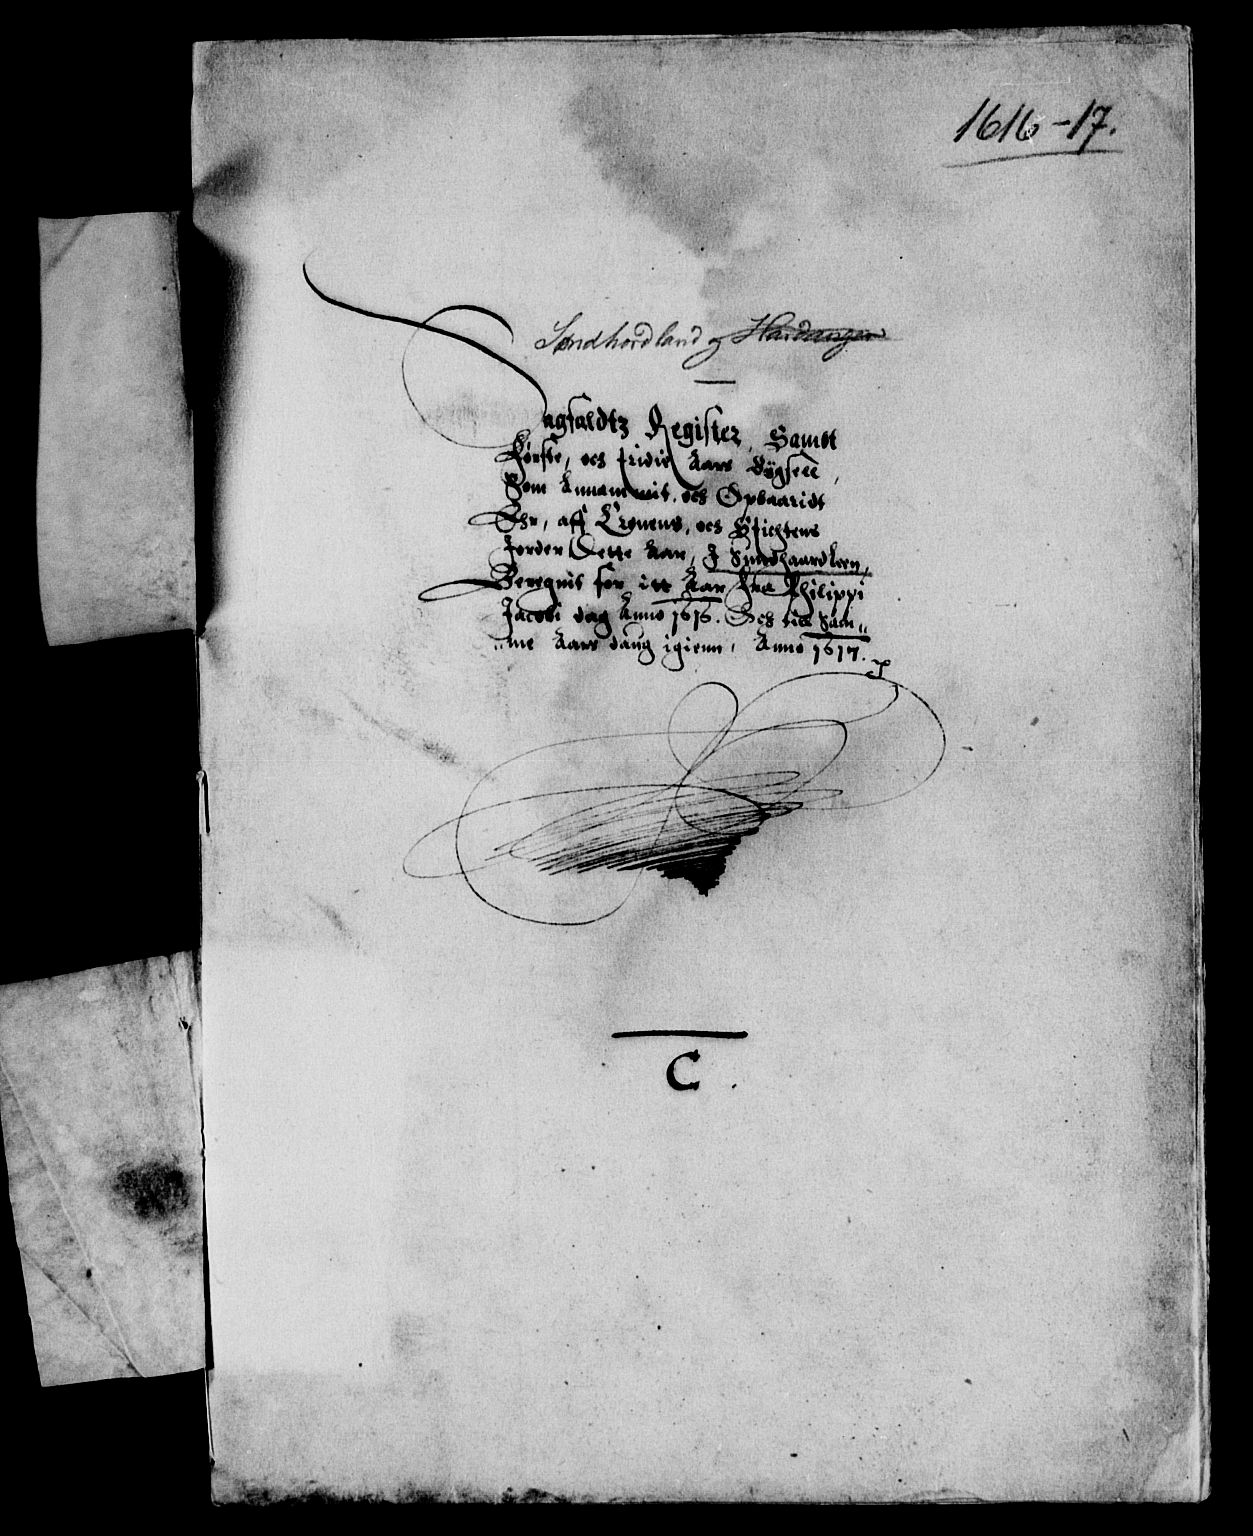 1616-17.
Søndhordland og Hardanger
Sagfaldtz Register, Sambt
Første, och tridie Aars Bygseel,
Som Annammit, och Opbaaridt
Ehr, aff Cronens, och Stichtens
Jorder Dette Aar, J Sundhaardleen,
Beregnit for itt Aar Fra Philippi
Jacobi dag Anno 1616. Och till Sam„
„me Aars daug igienn, Anno 1617.
C.